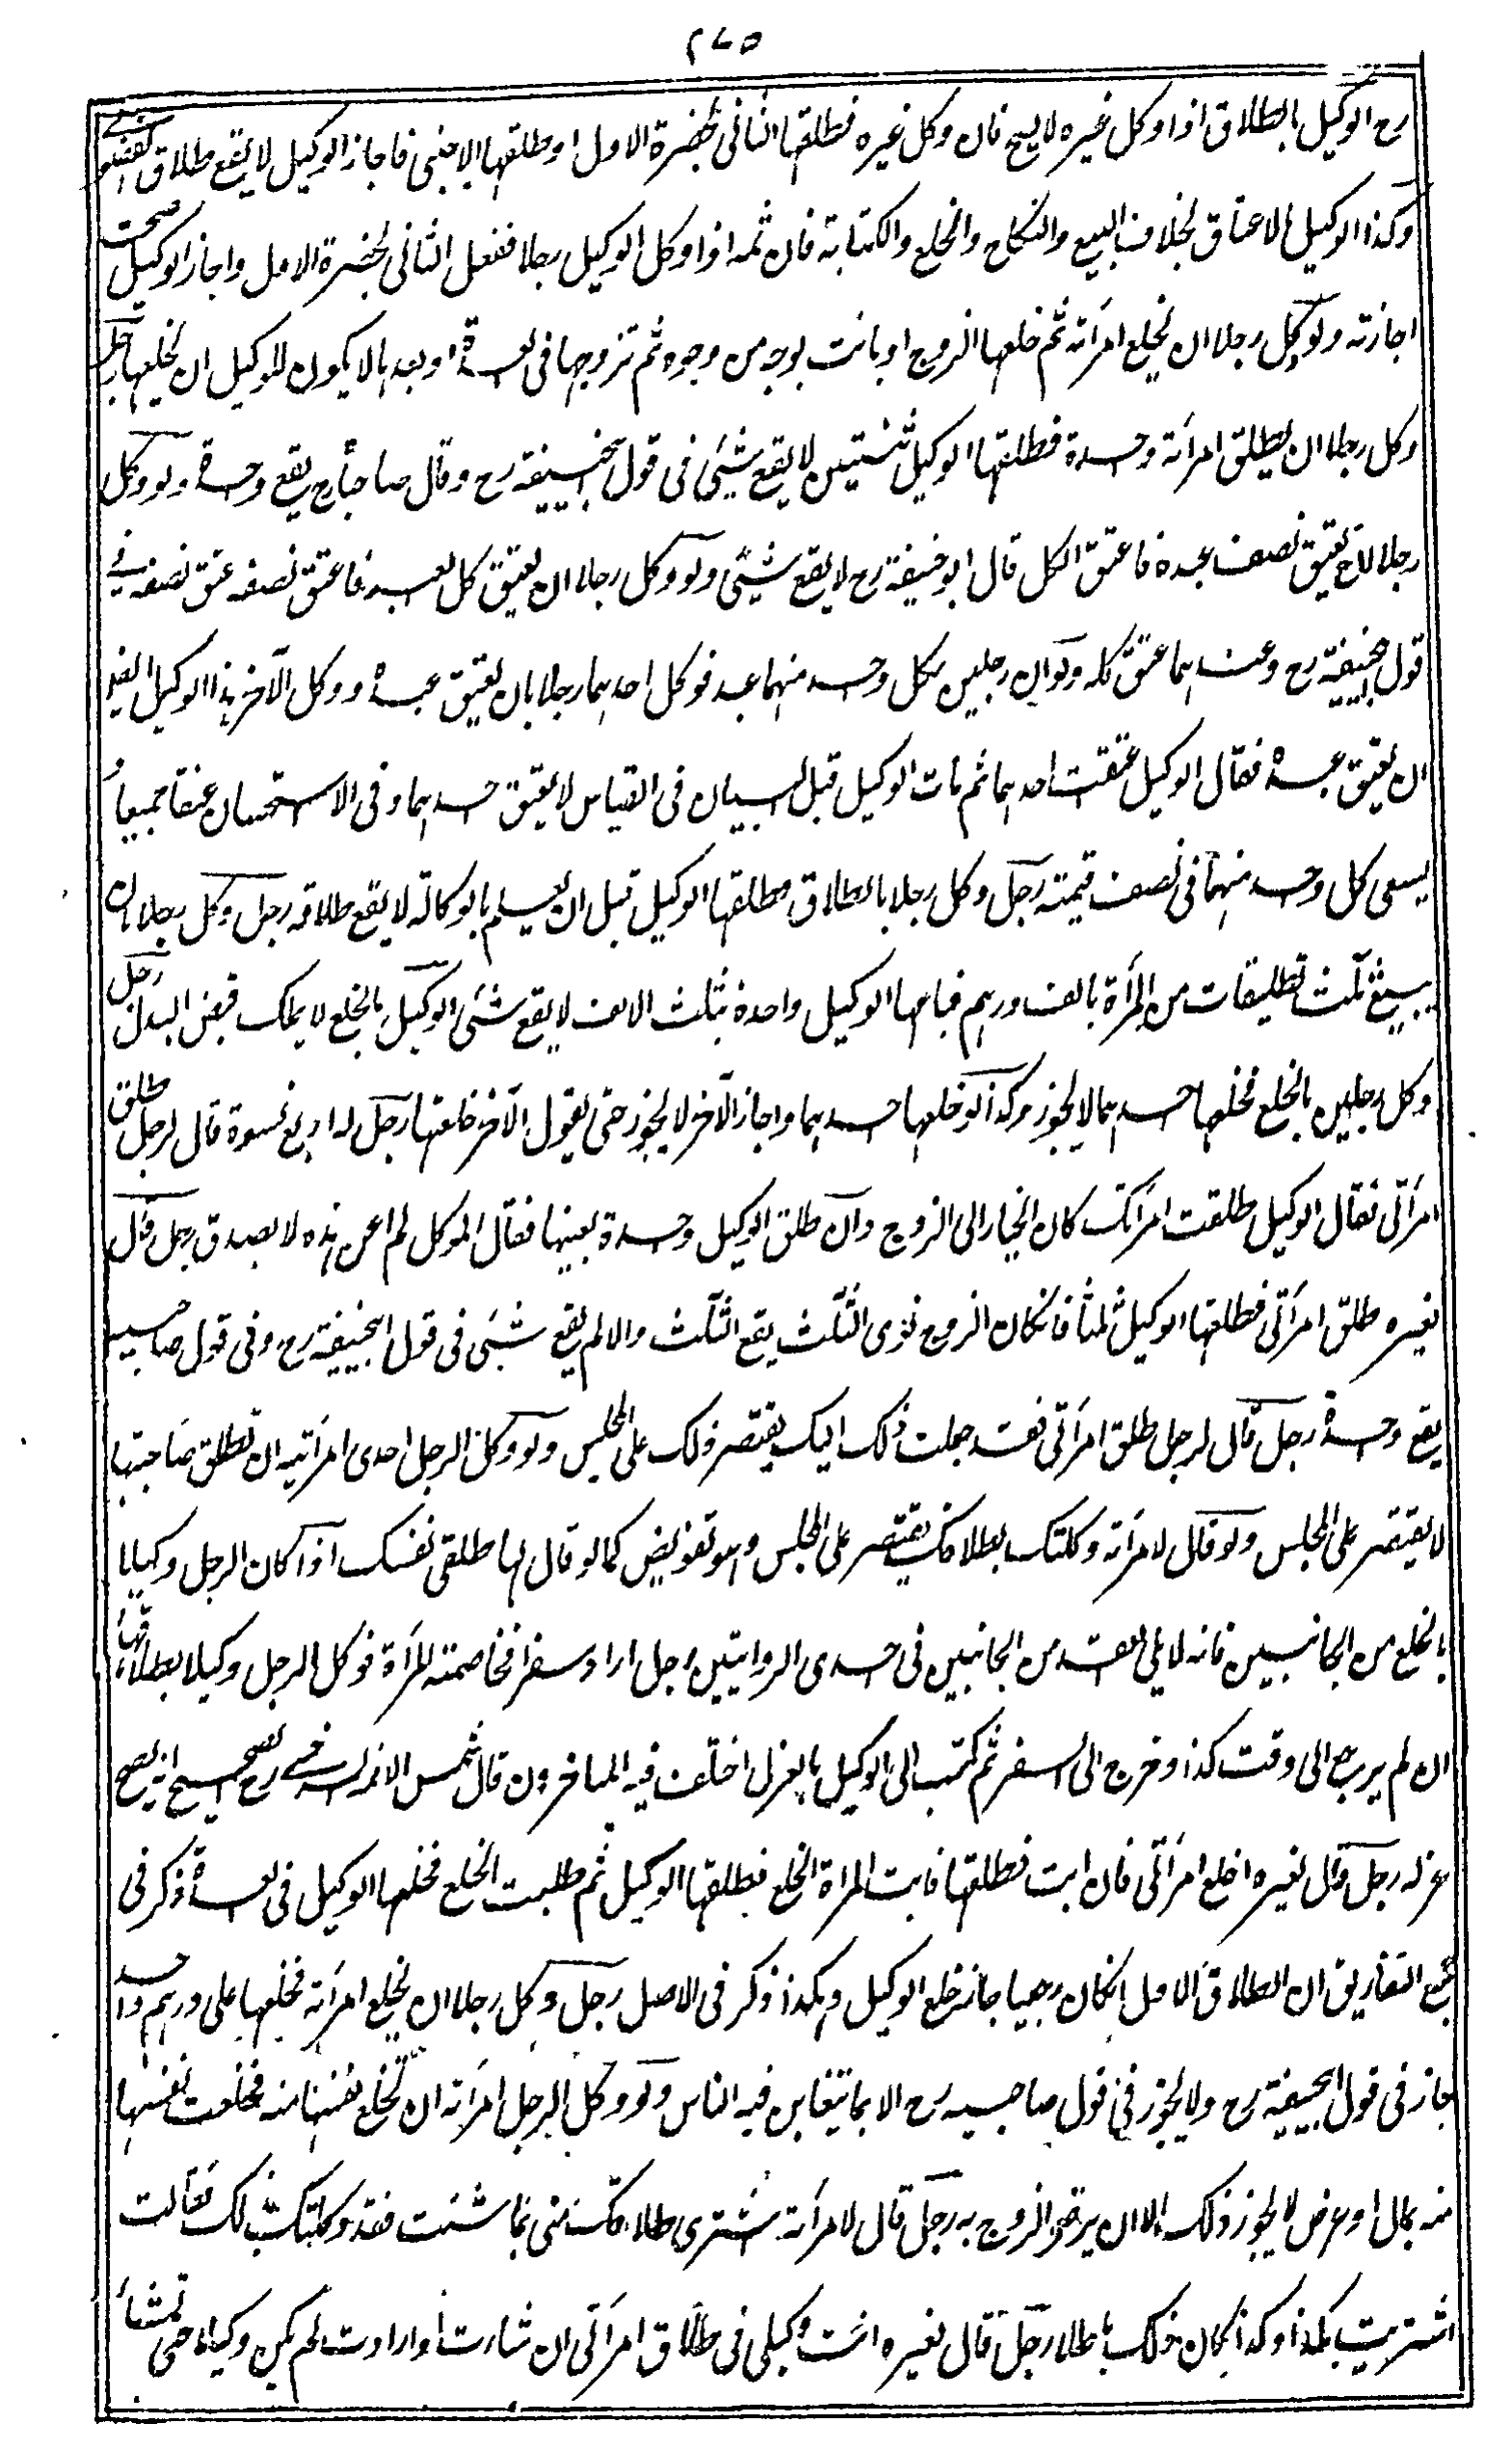 ٢٧٥
رح الوكيل بالطلاق اذا وكل غيره لا يصح فان وكل غيره فطلقها الثانى بحضرة الاول او طلقها الاجنبى فاجاز الوكيل لا يقع طلاق
وكذا الوكيل بالاعتاق بخلاف البيع والنكاح والخلع والكتابة فان ثمه اذا وكل الوكيل رجلا ففعل الثانى بحضرة الاول واجاز الوكيل صحت
اجازته ولو وكل رجلا ان يخلع امرأته ثم خلعها الزوج او بانت بوجه من وجوه ثم تزوجها فى العدة او بعدها لا يكون للوكيل ان يخلعها رجل
وكل رجلا ان يطلق امرأته وحدة فطلقها الوكيل ثنتين لا يقع شئ فى قول ابيحنيفة رح وقال صاحباه رح يقع وحدة ولو وكل
رجلا لان يعتق نصف عبده فاعتق الكل قال ابو حنيفة رح لا يقع شئ ولو وكل رجلا ان يعتق كل العبد فاعتق نصفه عتق نصفه فى
قول ابيحنيفة رح وعندهما عتق كله ولو ان رجلين لكل وحد منهما عبد فوكل احدهما رجلا بان يعتق عبده ووكل الآخر هذا الوكيل ايضا
ان يعتق عبده فقال الوكيل عتقت احدهما ثم مات الوكيل قبل البيان فى القياس لا يعتق احدهما وفى الاستحسان عتقا جميعا و
يسعى كل وحد منهما فى نصف قيمته رجل وكل رجلا بالطلاق فطلقها الوكيل قبل ان يعلم بالوكالة لا يقع طلاقه رجل وكل رجلا بان
يبيع ثلث تطليقات من المرأة بالف درهم فباعها الوكيل واحدة بثلث الالف لا يقع شئ الوكيل بالخلع لا يملك قبض البدل رجل
وكل رجلين بالخلع فخلعها احدهما لا يجوز وكذا لو خلعها احدهما واجاز الآخر لا يجوز حتى يقول الآخر خلعتها رجل له اربع نسوة قال لرجل طلق
امرأتى فقال الوكيل طلقت امرأتك كان الخيار الى الزوج وان طلق الوكيل وحدة بعينها فقال الموكل لم اعن هذه لا يصدق رجل قال
لغيره طلق امرأتى فطلقها الوكيل ثلثا فانكان الزوج نوى الثلث يقع الثلث والا لم يقع شئ فى قول ابيحنيفة رح وفى قول صاحبيه
يقع وحدة رجل قال لرجل طلق امرأتى فقد جعلت ذلك اليك يقتصر ذلك على المجلس ولو وكل الرجل احدى امرأتيه ان تطلق صاحبتها
لا يقتصر على المجلس ولو قال لامرأته وكلتك بطلاقك يقتصر على المجلس وهو تفويض كما لو قال لها طلقى نفسك اذا كان الرجل وكيلا
بالخلع من الجانبين فانه لا يلى العقد من الجانبين فى احدى الروايتين رجل اراد سفرا فخاصمته المرأة فوكل الرجل وكيلا بطلاقها
ان لم يرجع الى وقت كذا وخرج الى السفر ثم كتب الى الوكيل بالعزل اختلف فيه المتاخرون قال شمس الائمة السرخسى رح الصحيح انه يصح
عزله رجل قال لغيره اخلع امرأتى فان ابت فطلقها فابت المرأة الخلع فطلقها الوكيل ثم طلبت الخلع فخلعها الوكيل فى العدة ذكر فى
جمع التفاريق ان الطلاق الاول انكان رجعيا جاز خلع الوكيل وهكذا ذكر فى الاصل رجل وكل رجلا ان يخلع امرأته فخلعها على درهم واحد
جاز فى قول ابيحنيفة رح ولا يجوز فى قول صاحبيه رح الا بما يتغابن فيه الناس ولو وكل الرجل امرأته ان تخلع نفسها منه فخلعت نفسها
منه بمال او عرض لا يجوز ذلك الا ان يرضى الزوج به رجل قال لامرأته اشترى طلاقك منى بما شئت فقد وكلتك بذلك فقالت
اشتريت بكذا وكذا كان ذلك باطلا رجل قال لغيره انت وكيلى فى طلاق امرأتى ان شاءت او ارادت لم يكن وكيلا حتى تشاء